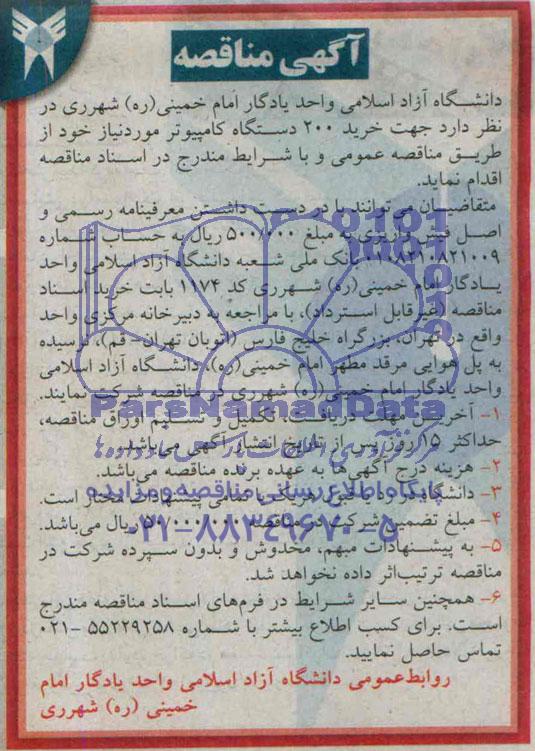 آگهی مناقصه
دانشگاه آزاد اسلامی واحد یادگار امام خمینی(ره) شهرری در
نظر دارد جهت خرید ۲۰۰ دستگاه کامپیوتر موردنیاز خود از
طریق مناقصه عمومی و با شرایط مندرج در اسناد مناقصه
اقدام نماید.
متقاضیان می‌توانند با در دست داشتن معرفینامه رسمی و
اصل فیش واریزی به مبلغ ۵۰۰/۰۰۰ ریال به حساب شماره
بانک ملی شعبه دانشگاه آزاد اسلامی واحد
یادگار امام خمینی(ره) شهرری کد ۱۱۷۴ بابت خرید اسناد
مناقصه (غیرقابل استرداد)، با مراجعه به دبیرخانه مرکزی واحد
واقع در تهران، بزرگراه خلیج فارس (اتوبان تهران- قم)، نرسیده
به پل هوایی مرقد مطهر امام خمینی(ره)، دانشگاه آزاد اسلامی
واحد یادگار امام خمینی(ره) شهرری در مناقصه شرکت نمایند.
۱- آخرین مهلت دریافت، تکمیل و تسلیم اوراق مناقصه،
حداکثر ۱۵ روز پس از تاریخ انتشار آگهی می‌باشد.
۲- هزینه درج آگهی‌ها به عهده برنده مناقصه می‌باشد.
۳- دانشگاه در رد یا قبول هریک یا تمامی پیشنهادات مختار است.
۴- مبلغ تضمین شرکت در مناقصه ریال می‌باشد.
۵- به پیشنهادات مبهم، مخدوش و بدون سپرده شرکت در
مناقصه ترتیب‌اثر داده نخواهد شد.
۶- همچنین سایر شرایط در فرم‌های اسناد مناقصه مندرج
است. برای کسب اطلاع بیشتر با شماره ۵۵۲۲۹۲۵۸ -۰۲۱
تماس حاصل نمایید.
روابط‌عمومی دانشگاه آزاد اسلامی واحد یادگار امام
خمینی (ره) شهرری
ParsNamadData
پایگاه اطلاع رسانی مناقصه و مزایده
۰۲۱-۸۸۳۴۹۶۷۰-۵